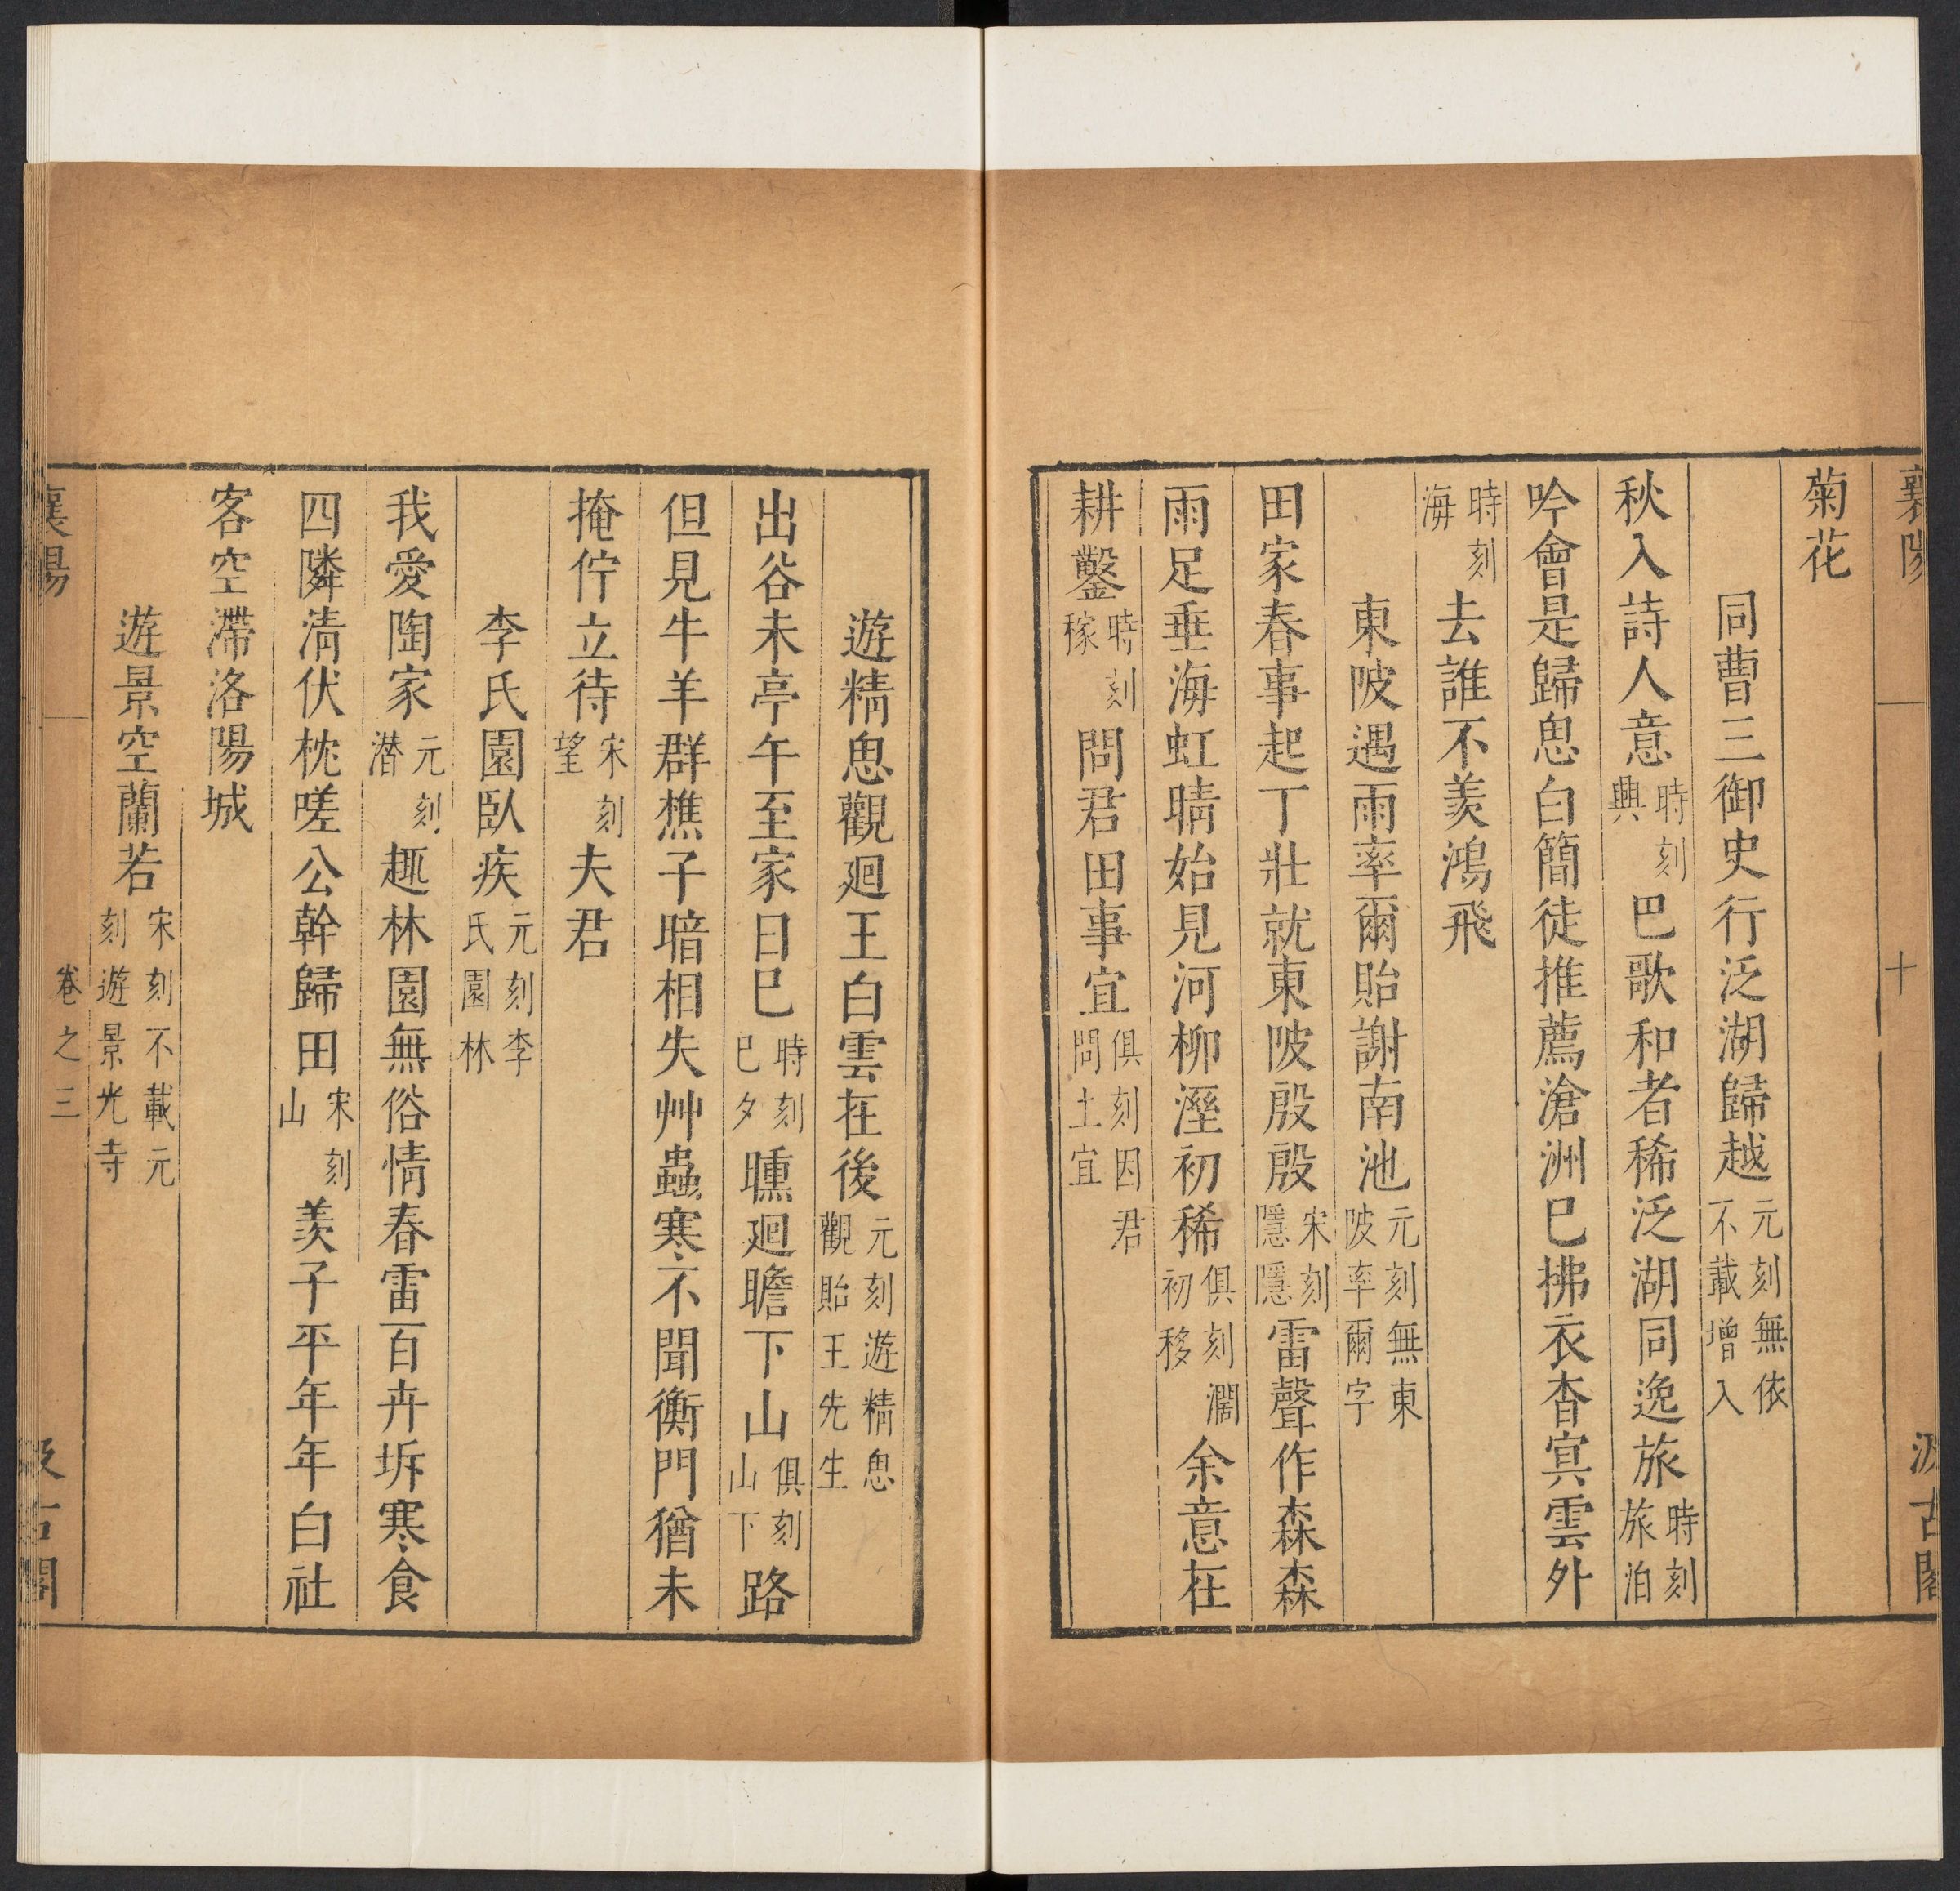 襄陽 十 汲古閣
菊花
同曹三御史行泛湖歸越元刻無依不載增入
秋入詩人意時刻興巴歌和者稀泛湖同逸旅時刻旅泊
吟會是歸思白簡徒推薦滄洲巳拂衣杳冥雲外
時刻海去誰不羨鴻飛
東陂遇雨率爾貽謝南池元刻無東陂率爾字
田家春事起丁壯就東陂殷殷宋刻隱隱雷聲作森森
雨足垂海虹晴始見河柳溼初稀俱刻濶初移余意在
耕鑿時刻稼問君田事宜俱刻因君問土宜
遊精思觀廻王白雲在後元刻遊精思觀貽王先生
出谷未亭午至家日巳時刻巳夕曛廻瞻下山俱刻山下路
但見牛羊群樵子暗相失艸蟲寒不聞衡門猶未
掩佇立待宋刻望夫君
李氏園臥疾元刻李氏園林
我愛陶家元刻潜趣林園無俗情春雷百卉坼寒食
四隣清伏枕嗟公幹歸田宋刻山羨子平年年白社
客空滯洛陽城
遊景空蘭若宋刻不載元刻遊景光寺
襄陽 卷之三 汲古閣